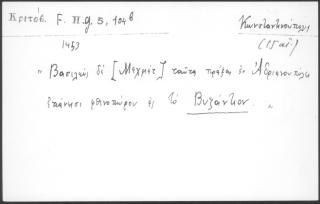 Κριτόβ. F. H g. 5, 104β Κωνσταντινούπολις
1453 (15 αἰ.)
" Βασιλεὺς δὲ [Μεχμὲτ] ταῦτα πράξας ἐν Ἀδριανουπόλει
ἐπάνεισι φθινοπώρου ἐς τὸ Βυζάντιον. "